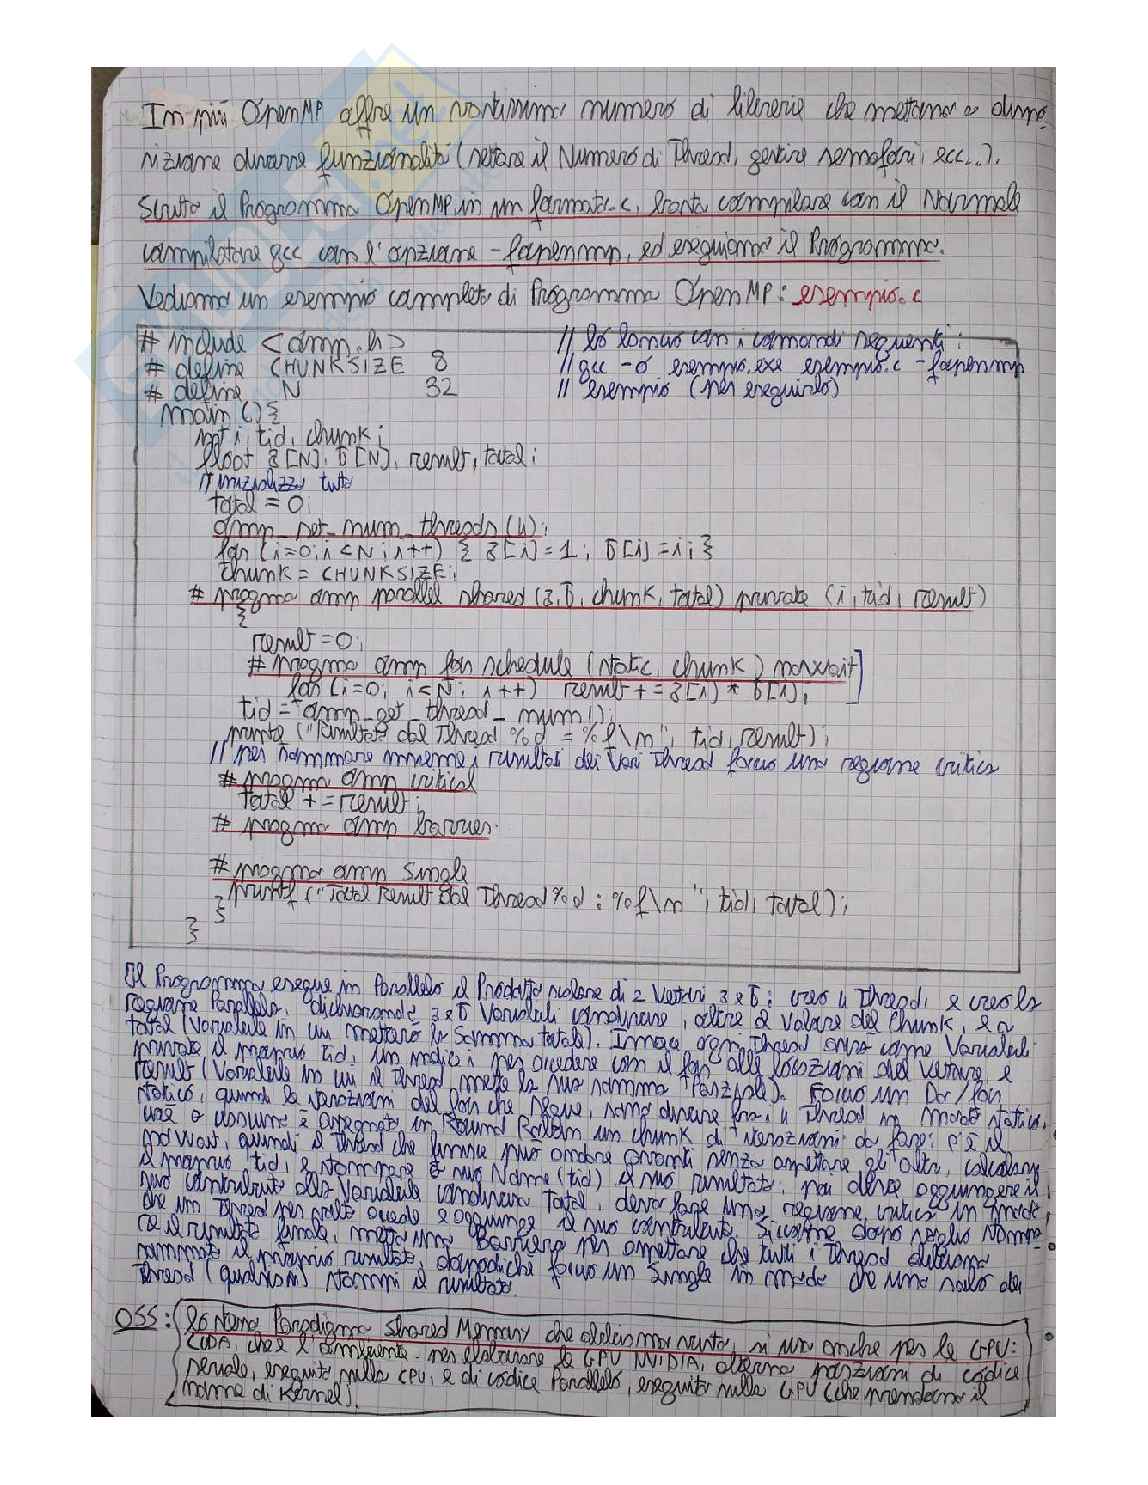 In più OpenMP offre un vastissimo numero di librerie che mettono a dispo-
sizione diverse funzionalità (settare il Numero di Thread, gestire semafori, ecc..).
Scritto il Programma OpenMP in un formato .c, basta compilare con il Normale
compilatore gcc con l'opzione -fopenmp, ed eseguiamo il Programma.
Vediamo un esempio completo di Programma OpenMP: esempio.c
# include <omp.h> // lo lancio con i comandi seguenti:
# define CHUNKSIZE 8 // gcc -o esempio.exe esempio.c -fopenmp
# define N 32 // esempio (per eseguirlo)
main () {
int i, tid, chunk;
float a[N], b[N], result, total;
// inizializzo tutto
total = 0;
omp_set_num_threads(4);
for (i=0; i<N; i++) { a[i]=1; b[i]=i; }
chunk = CHUNKSIZE;
# pragma omp parallel shared (a,b, chunk, total) private (i, tid, result)
{
result=0;
# pragma omp for schedule (static, chunk) nowait
for (i=0; i<N; i++) result += a[i] * b[i];
tid = omp_get_thread_num();
printf ("Risultato dal Thread %d = %f\n", tid, result);
// per sommare insieme i risultati dei Vari Thread faccio una regione critica
# pragma omp critical
total += result;
# pragma omp barrier
# pragma omp single
printf ("Total Result dal Thread %d : %f\n", tid, total);
}
}
Il Programma esegue in Parallelo il Prodotto scalare di 2 Vettori a e b: creo 4 Thread, e creo la
regione Parallela, dichiarando a e b Variabili condivise, oltre al Valore del Chunk, e a
total (Variabile in cui metterò la Somma totale). Invece ogni Thread avrà come Variabili
private il proprio tid, un indice i per accedere con il for alle locazioni del Vettore e
result (Variabile in cui il Thread mette la sua somma Parziale). Faccio un Do/for
statico, quindi le iterazioni del for che segue, sono divise fra i 4 Thread in modo statico,
cioè a ciascuno è assegnato in Round Robin un chunk di iterazioni da fare; c'è il
nowait, quindi il Thread che finisce può andare avanti senza aspettare gli altri, calcolare
il proprio tid, e stampare il suo Nome (tid) e suo risultato; poi deve aggiungere il
suo contributo alla Variabile condivisa Total, devo fare una regione critica in modo
che un Thread per volta accede e aggiunge il suo contributo. Siccome dopo voglio stampa-
re il risultato finale, metto una Barriera per aspettare che tutti i Thread abbiano
sommato il proprio risultato, dopodiché faccio un Single in modo che uno solo dei
Thread (qualsiasi) stampi il risultato.
OSS: Lo stesso Paradigma Shared Memory che abbiamo visto, si usa anche per le GPU:
CUDA, che è l'ambiente per elaborare le GPU NVIDIA, alterna porzioni di codice
seriale, eseguito sulla CPU, e di codice Parallelo, eseguito sulla GPU (che prendono il
nome di Kernel).